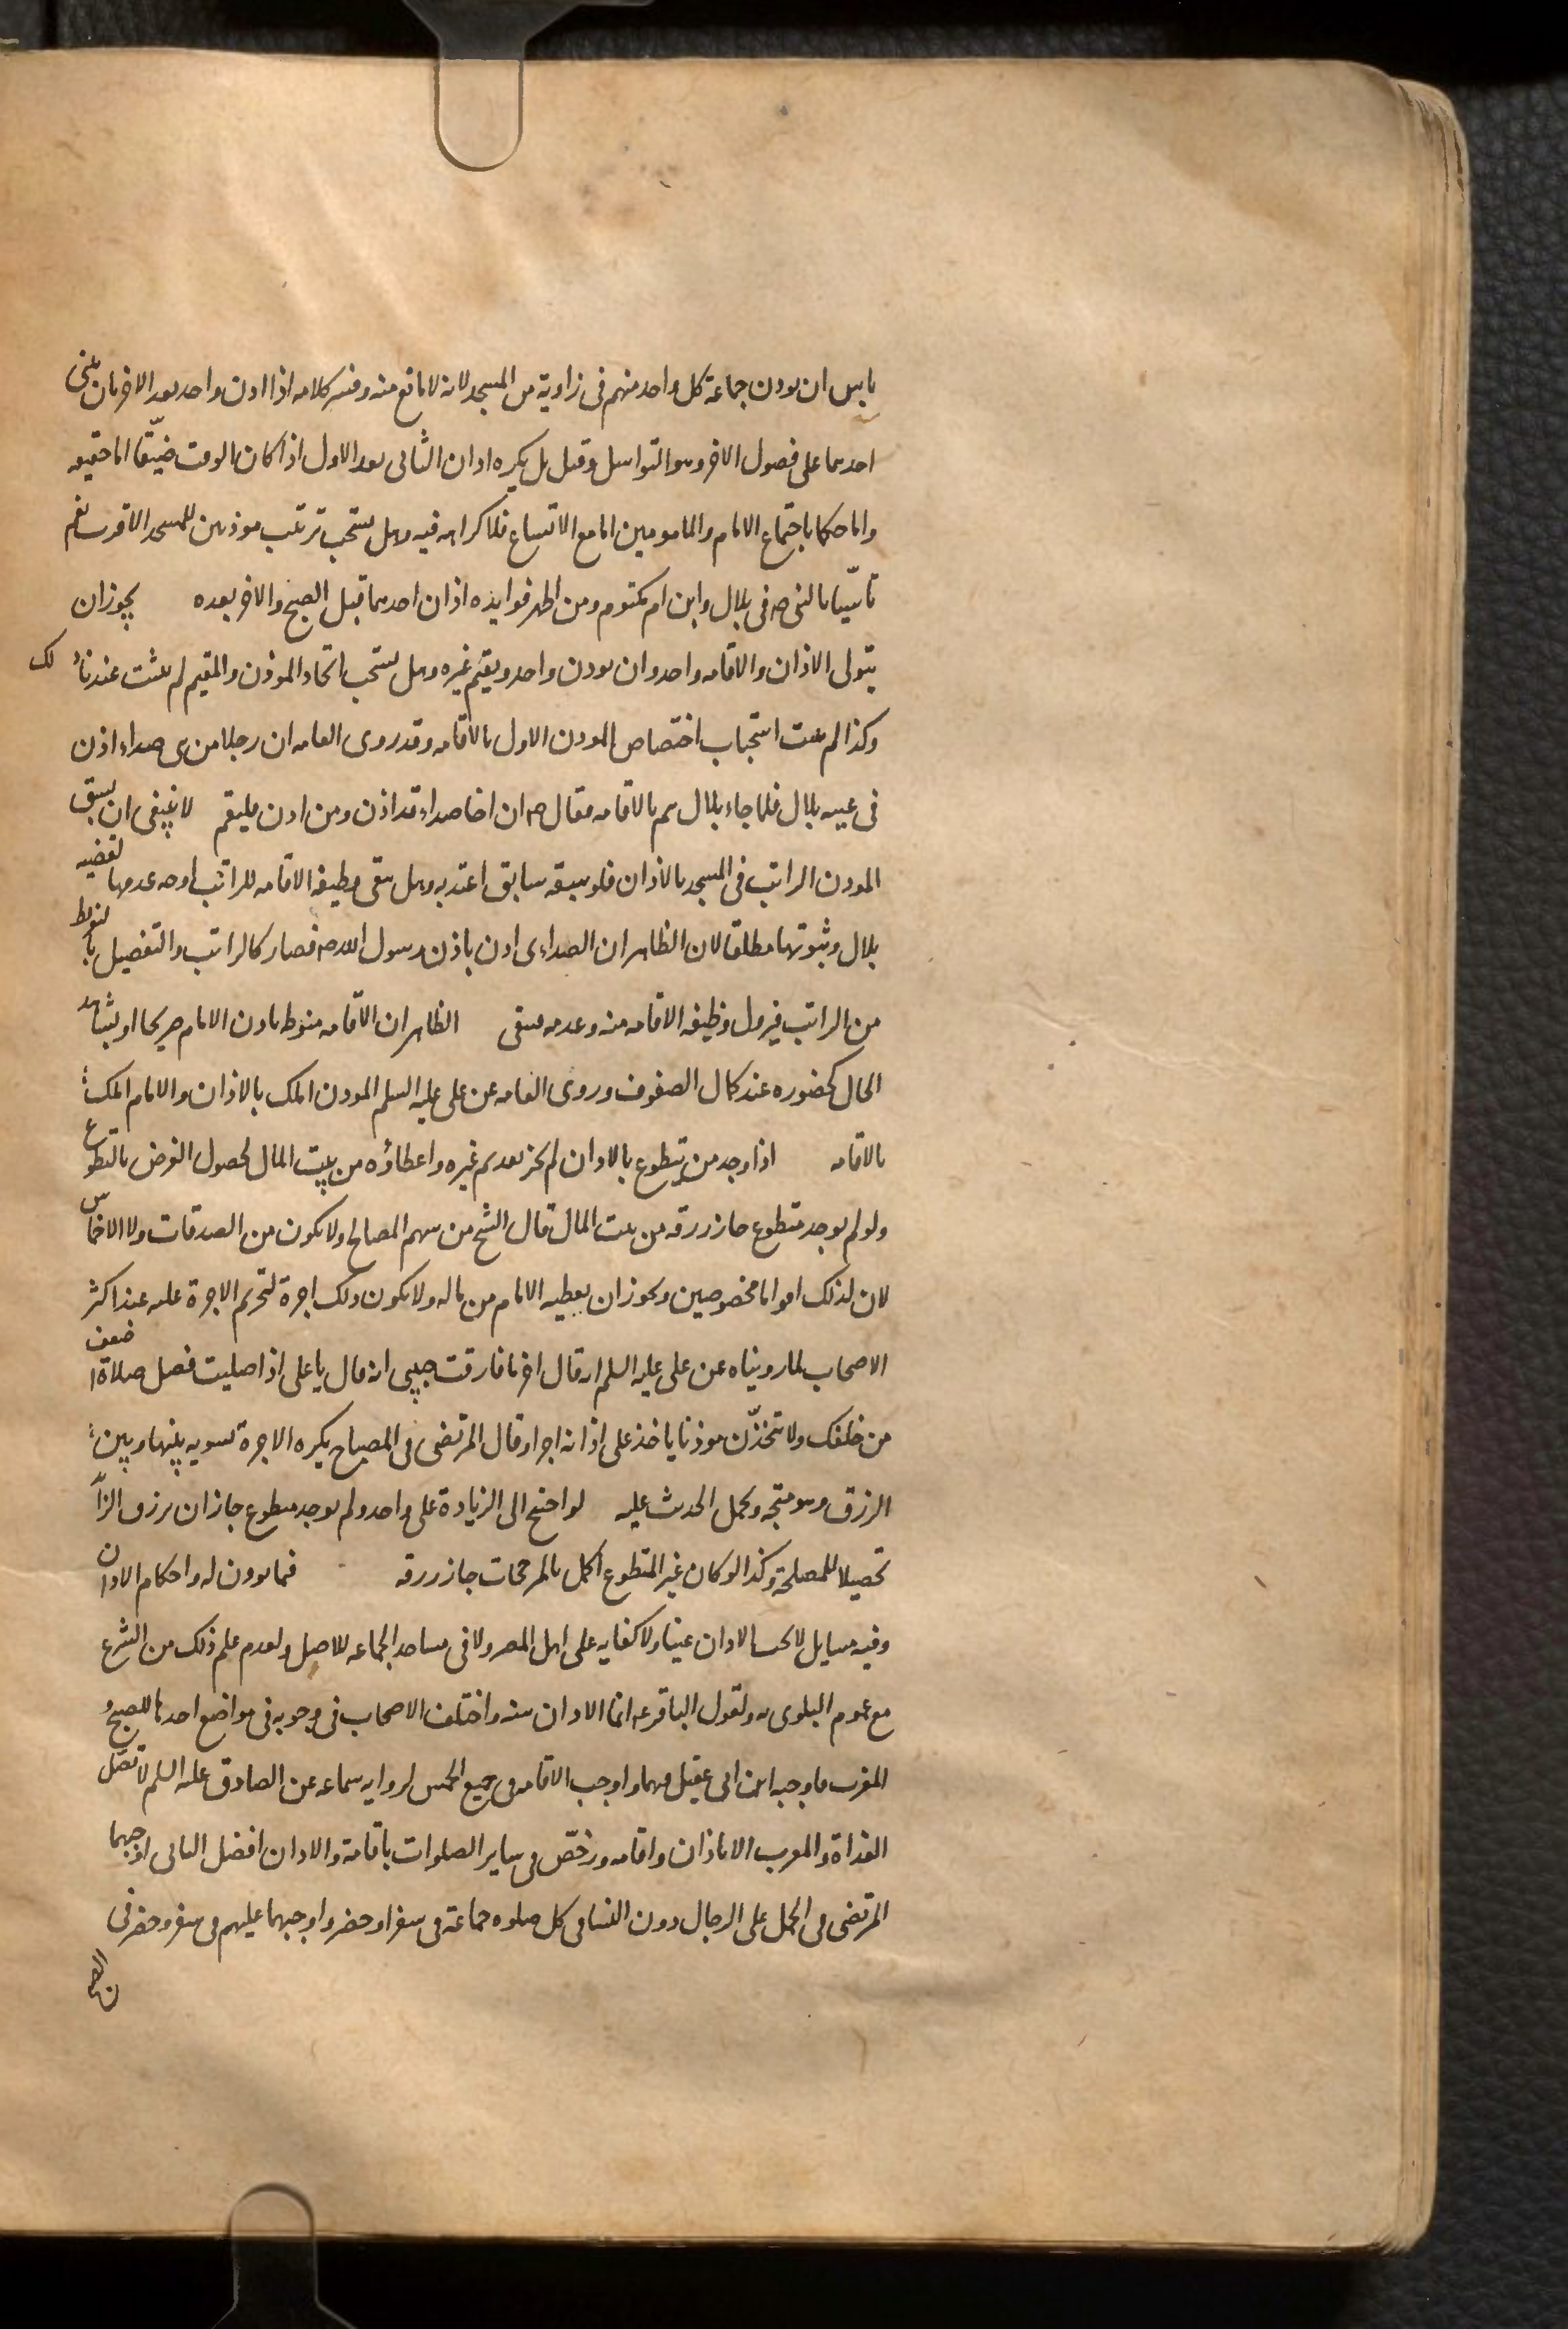 باس ان يوذن جماعة كل واحد منهم فى زاوية من المسجد لانه لا مانع منه وفسر كلامه اذا اذن واحد بعد الاخر بان يبنى
احدهما على فصول الاخر وهو التراسل وقيل بل يكره اذان الثانى بعد الاول اذا كان الوقت ضيّقا اما حقيقه
واما حكما باجتماع الامام والمامومين اما مع الاتساع فلا كراهه فيه وهل يستحب ترتيب موذنين للمسجد الاقرب نعم
تاسّيا بالنبى صه فى بلال وابن ام مكتوم ومن اظهر فوايده اذان احدهما قبل الصبح والاخر بعده يجوز ان
يتولى الاذان والاقامه واحد وان يوذن واحد ويقيم غيره وهل يستحب اتحاد الموذن والمقيم لم يثبت عندنا ذلك
وكذا لم يثبت استحباب اختصاص الموذن الاول بالاقامه وقد روى العامه ان رجلا من بنى صداء اذن
فى غيبه بلال فلما جاء بلال هم بالاقامه فقال صه ان اخا صداء قد اذن ومن اذن فليقم لا ينبغى ان يسبق
الموذن الراتب فى المسجد بالاذان فلو سبقه سابق اعتد به وهل تبقى وظيفه الاقامه للراتب اوجه عدمها لقضيه
بلال وثبوتها مطلقا لان الظاهر ان الصداءى اذن باذن رسول الله صه فصار كالراتب والتفصيل بالتفريط
من الراتب فيزول وظيفه الاقامه منه وعدمه فتبقى الظاهر ان الاقامه منوط باذن الامام صريحا او بشاهد
الحال كحضوره عند كمال الصفوف وروى العامه عن على عليه السلم الموذن املك بالاذان والامام املك
بالاقامه اذا وجد من يتطوع بالاذان لم يجز تقديم غيره واعطاؤه من بيت المال لحصول الغرض بالتطوع
ولو لم يوجد متطوع جاز رزقه من بيت المال قال الشيخ من سهم المصالح ولا يكون من الصدقات ولا الاخماس
لان لذلك اقواما مخصوصين ويجوز ان يعطيه الامام من ماله ولا يكون ذلك اجرة لتحريم الاجرة عليه عند اكثر
الاصحاب لما رويناه عن على عليه السلم انه قال اخر ما فارقت حبيبى انه قال يا على اذا صليت فصل صلاة اضعف
من خلفك ولا تتخذّن موذنا ياخذ على اذانه اجرا وقال المرتضى فى المصباح يكره الاجرة تسويه بينها وبين
الرزق وهو متجه ويحمل الحديث عليه لو احتيج الى الزيادة على واحد ولم يوجد متطوع جاز ان يرزق الزائد
تحصيلا للمصلحة وكذا لو كان غير المتطوع اكمل بالمرجحات جاز رزقه فيما يوذن له واحكام الاذان
وفيه مسايل لا يجب الاذان عينا ولا كفايه على اهل المصر ولا فى مساجد الجماعه للاصل ولعدم علم ذلك من الشرع
مع عموم البلوى به ولقول الباقر عه انما الاذان سنه واختلف الاصحاب فى وجوبه فى مواضع احدها للصبح و
المغرب فاوجبه ابن ابى عقيل فيهما واوجب الاقامه فى جميع الخمس لروايه سماعه عن الصادق عليه السلم لا تصل
الغداة والمغرب الا باذان واقامه ورخّص فى ساير الصلوات باقامة والاذان افضل الثانى اوجبهما
المرتضى فى الجمل على الرجال دون النسا فى كل صلوه جماعة فى سفر او حضر واوجبهما عليهم فى سفر وحضر فى